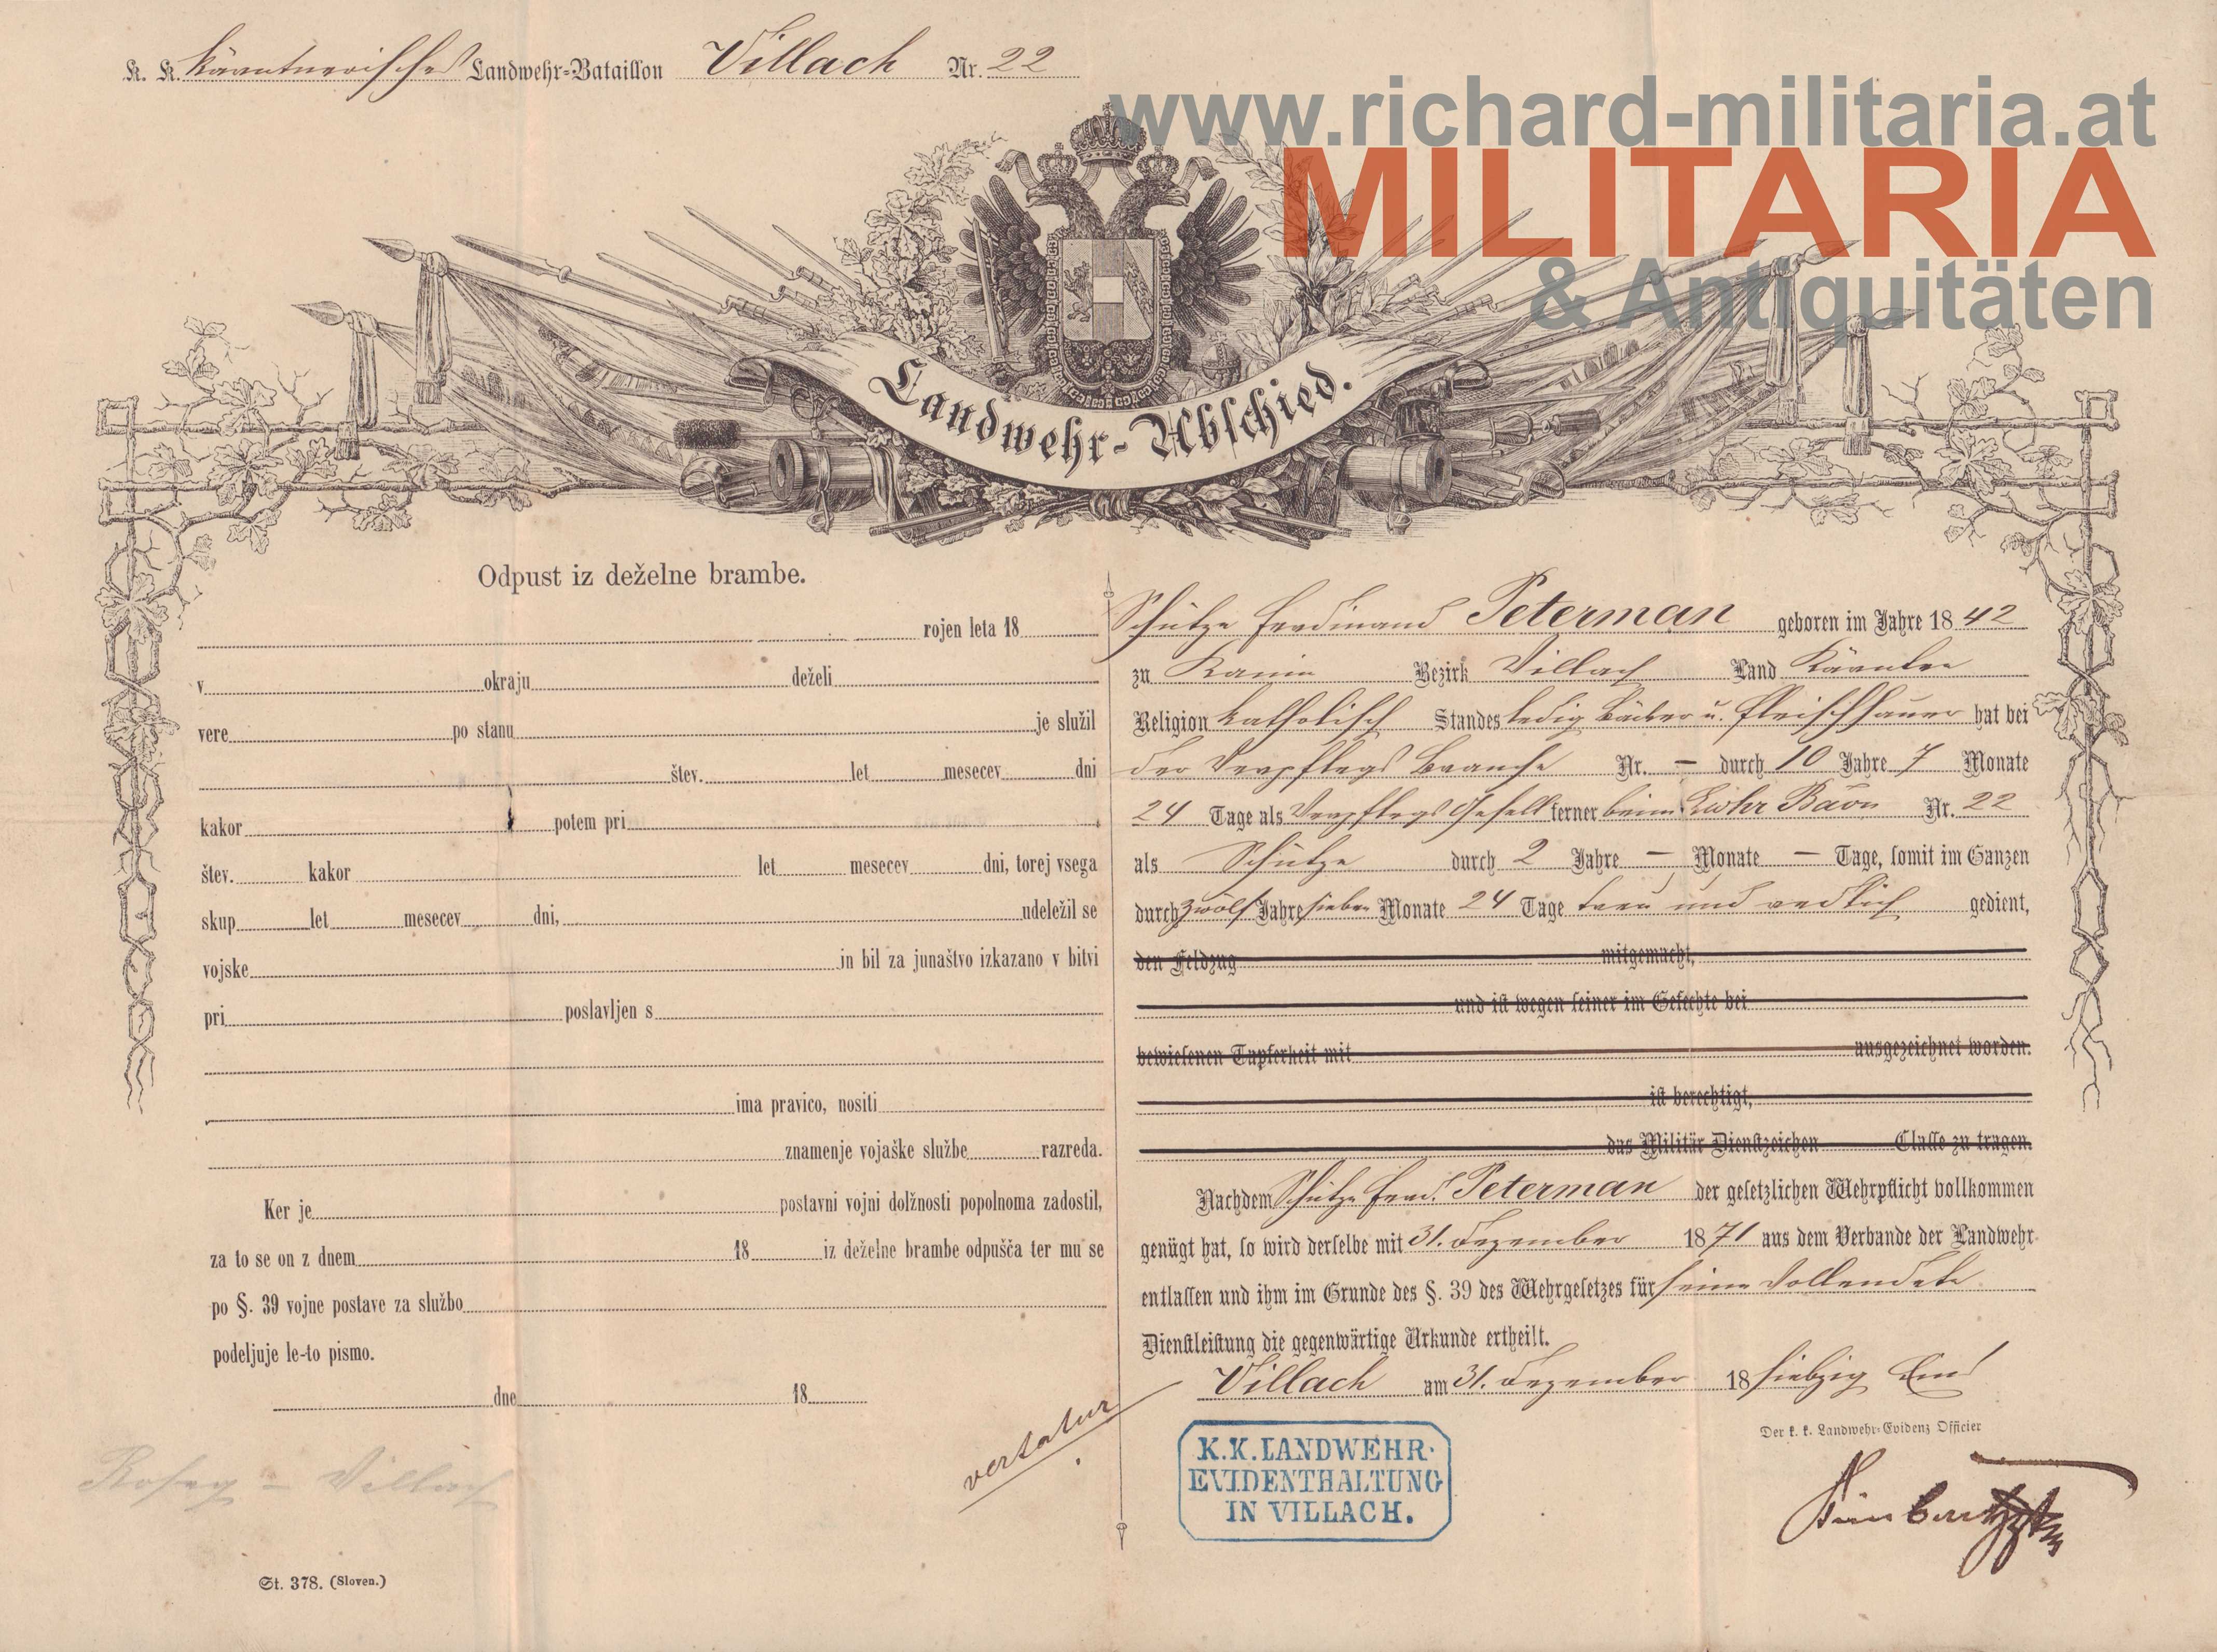 K. K. Kärntnerisches Landwehr-Bataillon Villach Nr. 22
www.richard-militaria.at
MILITARIA
& Antiquitäten
Landwehr-Abschied.
Odpust iz deželne brambe.
rojen leta 18
v okraju deželi
vere po stanu je služil
štev. let mesecev dni
kakor potem pri
štev. kakor let mesecev dni, torej vsega
skup let mesecev dni, udeležil se
vojske in bil za junaštvo izkazano v bitvi
pri poslavljen s
ima pravico, nositi
znamenje vojaške službe razreda.
Ker je postavni vojni dolžnosti popolnoma zadostil,
za to se on z dnem 18 iz deželne brambe odpušča ter mu se
po §. 39 vojne postave za službo
podeljuje le-to pismo.
dne 18
Schütze Ferdinand Peterman geboren im Jahre 1842
zu Bezirk Villach Land Kärnten
Religion katholisch Standes ledig Bäcker u. Fleischhauer hat bei
der Verpflegs Branche Nr. – durch 10 Jahre 7 Monate
24 Tage als Verpflegs Gesell ferner beim Lwhr Baon Nr. 22
als Schütze durch 2 Jahre – Monate – Tage, somit im Ganzen
durch zwölf Jahre sieben Monate 24 Tage treu und redlich gedient,
den Feldzug mitgemacht,
und ist wegen seiner im Gefechte bei
bewiesenen Tapferkeit mit ausgezeichnet worden.
ist berechtigt,
das Militär Dienstzeichen Classe zu tragen.
Nachdem Schütze Ferd. Peterman der gesetzlichen Wehrpflicht vollkommen
genügt hat, so wird derselbe mit 31. Dezember 1871 aus dem Verbande der Landwehr
entlassen und ihm im Grunde des §. 39 des Wehrgesetzes für seine vollendete
Dienstleistung die gegenwärtige Urkunde ertheilt.
Villach am 31. Dezember 18 siebzig Eins
Der k. k. Landwehr-Evidenz Officier
vertatur
K.K. LANDWEHR-
EVIDENTHALTUNG
IN VILLACH.
Rosegg – Villach
St. 378. (Sloven.)